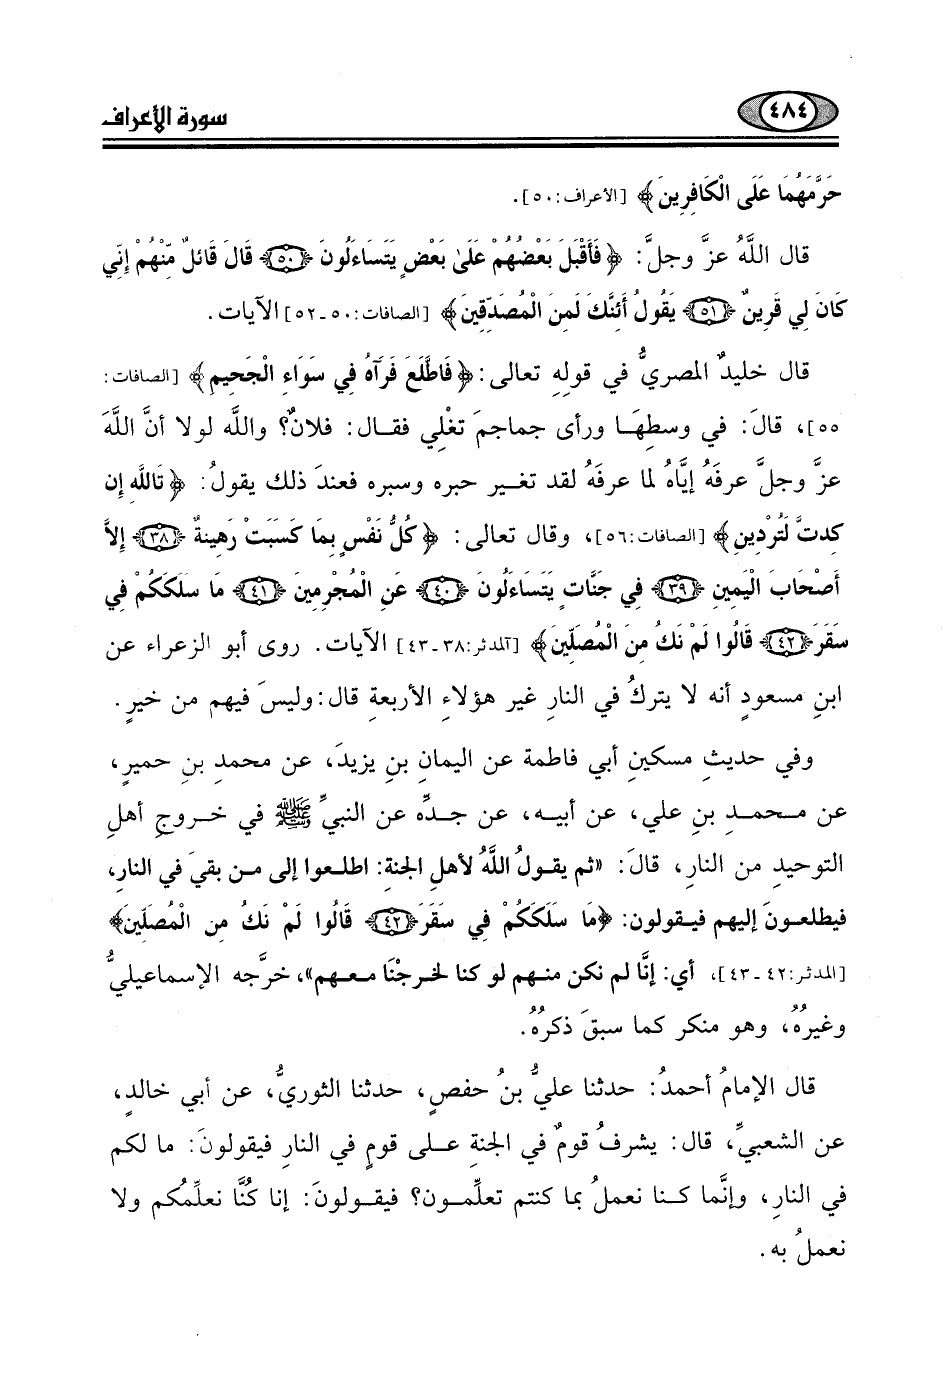 ٤٨٤
سورة الأعراف
حَرَّمَهُمَا عَلَى الْكَافِرِينَ ﴾ [الأعراف:٥٠].
قال اللَّهُ عزَّ وجلَّ: ﴿ فَأَقْبَلَ بَعْضُهُمْ عَلَىٰ بَعْضٍ يَتَسَاءَلُونَ ﴿٥٠﴾ قَالَ قَائِلٌ مِّنْهُمْ إِنِّي
كَانَ لِي قَرِينٌ ﴿٥١﴾ يَقُولُ أَئِنَّكَ لَمِنَ الْمُصَدِّقِينَ ﴾ [الصافات:٥٠ـ٥٢] الآيات.
قال خليدٌ المصريُّ في قولِه تعالى: ﴿ فَاطَّلَعَ فَرَآهُ فِي سَوَاءِ الْجَحِيمِ ﴾ [الصافات:
٥٥]، قالَ: في وسطِهَا ورأى جماجمَ تغْلِي فقال: فلانٌ؟ واللَّه لولا أنَّ اللَّهَ
عزَّ وجلَّ عرفَهُ إيَّاهُ لما عرفَهُ لقد تغير حبره وسبره فعندَ ذلك يقولُ: ﴿ تَاللَّهِ إِن
كِدتَّ لَتُرْدِينِ ﴾ [الصافات:٥٦]، وقال تعالى: ﴿ كُلُّ نَفْسٍ بِمَا كَسَبَتْ رَهِينَةٌ ﴿٣٨﴾ إِلاَّ
أَصْحَابَ الْيَمِينِ ﴿٣٩﴾ فِي جَنَّاتٍ يَتَسَاءَلُونَ ﴿٤٠﴾ عَنِ الْمُجْرِمِينَ ﴿٤١﴾ مَا سَلَكَكُمْ فِي
سَقَرَ ﴿٤٢﴾ قَالُوا لَمْ نَكُ مِنَ الْمُصَلِّينَ ﴾ [المدثر:٣٨ـ٤٣] الآيات. روى أبو الزعراء عن
ابنِ مسعودٍ أنه لا يتركُ في النارِ غير هؤلاءِ الأربعةِ قال: وليسَ فيهم من خيرٍ.
وفي حديثِ مسكينٍ أبي فاطمة عن اليمانِ بنِ يزيدَ، عن محمدِ بنِ حميرٍ،
عن محمدِ بنِ علي، عن أبيه، عن جدِّه عن النبيِّ ﷺ في خروجِ أهلِ
التوحيدِ من النارِ، قالَ: «ثم يقولُ اللَّهُ لأهلِ الجنة: اطلعوا إلى من بقيَ في النار،
فيطلعونَ إليهم فيقولون: ﴿مَا سَلَكَكُمْ فِي سَقَرَ ﴿٤٢﴾ قَالُوا لَمْ نَكُ مِنَ الْمُصَلِّينَ﴾
[المدثر:٤٢-٤٣]، أي: إنَّا لم نكن منهم لو كنا لخرجْنَا معهم»، خرَّجه الإسماعيليُّ
وغيرُهُ، وهو منكر كما سبقَ ذكرُهُ.
قال الإمامُ أحمدُ: حدثنا عليُّ بنُ حفصٍ، حدثنا الثوريُّ، عن أبي خالدٍ،
عن الشعبيِّ، قال: يشرفُ قومٌ في الجنةِ على قومٍ في النارِ فيقولونَ: ما لكم
في النارِ، وإنَّما كنا نعملُ بما كنتم تعلِّمون؟ فيقولونَ: إنا كُنَّا نعلِّمُكم ولا
نعملُ به.